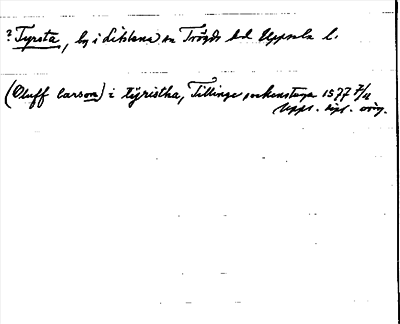 ? Tyrsta, by i Litslena sn Trögds hd Uppsala l.
(Oluff Larson) i tyristha, Tillinge sockenstuga 1577 7/11
Uppl. dipl. orig.